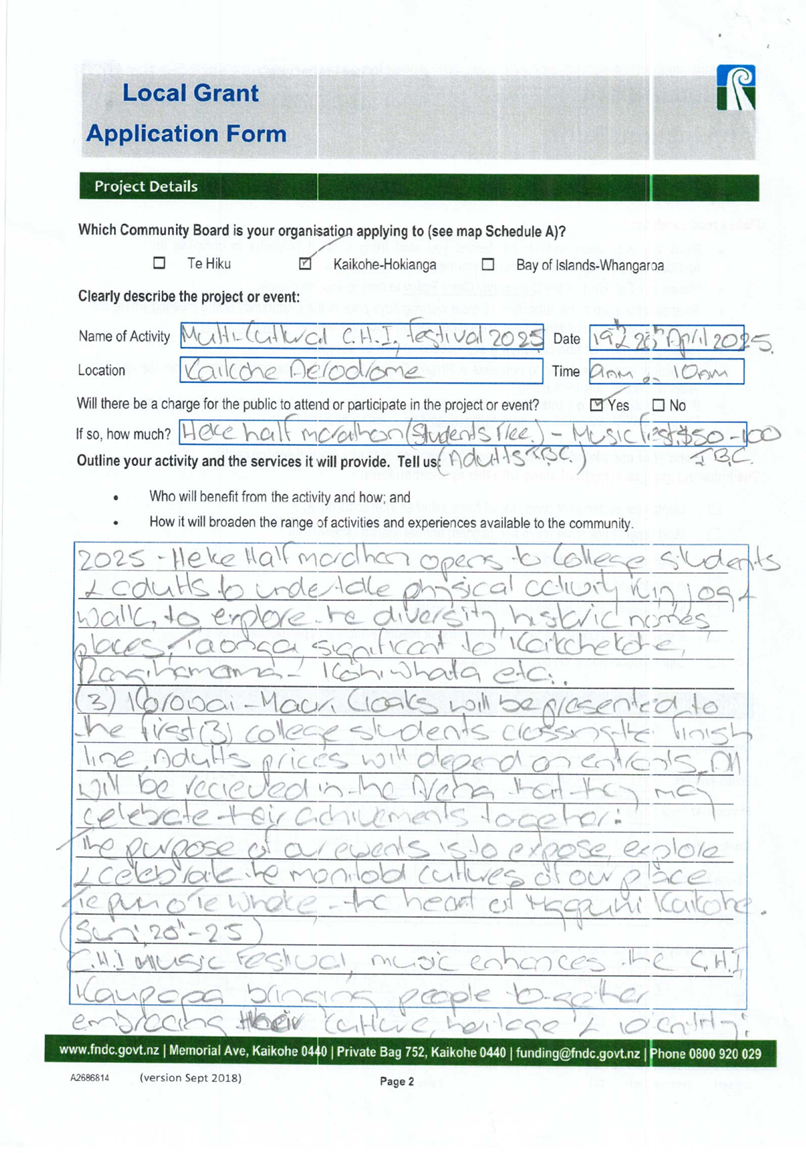 Local Grant
Application Form
Project Details
Which Community Board is your organisation applying to (see map Schedule A)?
☐ Te Hiku ☑ Kaikohe-Hokianga ☐ Bay of Islands-Whangaroa
Clearly describe the project or event:
Name of Activity Multi Cultural C.H.I, festival 2025 Date 19th & 20th April 2025.
Location Kaikohe Aerodrome Time 9am - 10am
Will there be a charge for the public to attend or participate in the project or event? ☑ Yes ☐ No
If so, how much? Heke half marathon (Students free.) - Music fest $50-100
Outline your activity and the services it will provide. Tell us: (Adults TBC.) TBC.
• Who will benefit from the activity and how; and
• How it will broaden the range of activities and experiences available to the community.
2025 - Heke Half marathon opens to College students
& adults to undertake physical activity run jog &
walk, to explore the diversity, historic names
places, taonga significant to
- Kohiwhata etc..
(3) Korowai - Maori Cloaks will be presented to
the first (3) college students crossing the finish
line. Adults prices will depend on entrants. All
will be recieved in the Arena that they may
celebrate their achivements together:
The purpose of our events is to expose, explore
& celebrate the manifold cultures of our place
Te puna o te whake - the heart of Ngapuhi Kaikohe.
(Sun: 20th - 25)
C.H.I Music Festival, music enhances the C.H.I,
Kaupapa bringing people together
embracing their culture, heritage & identity:
www.fndc.govt.nz | Memorial Ave, Kaikohe 0440 | Private Bag 752, Kaikohe 0440 | funding@fndc.govt.nz | Phone 0800 920 029
A2686814 (version Sept 2018) Page 2